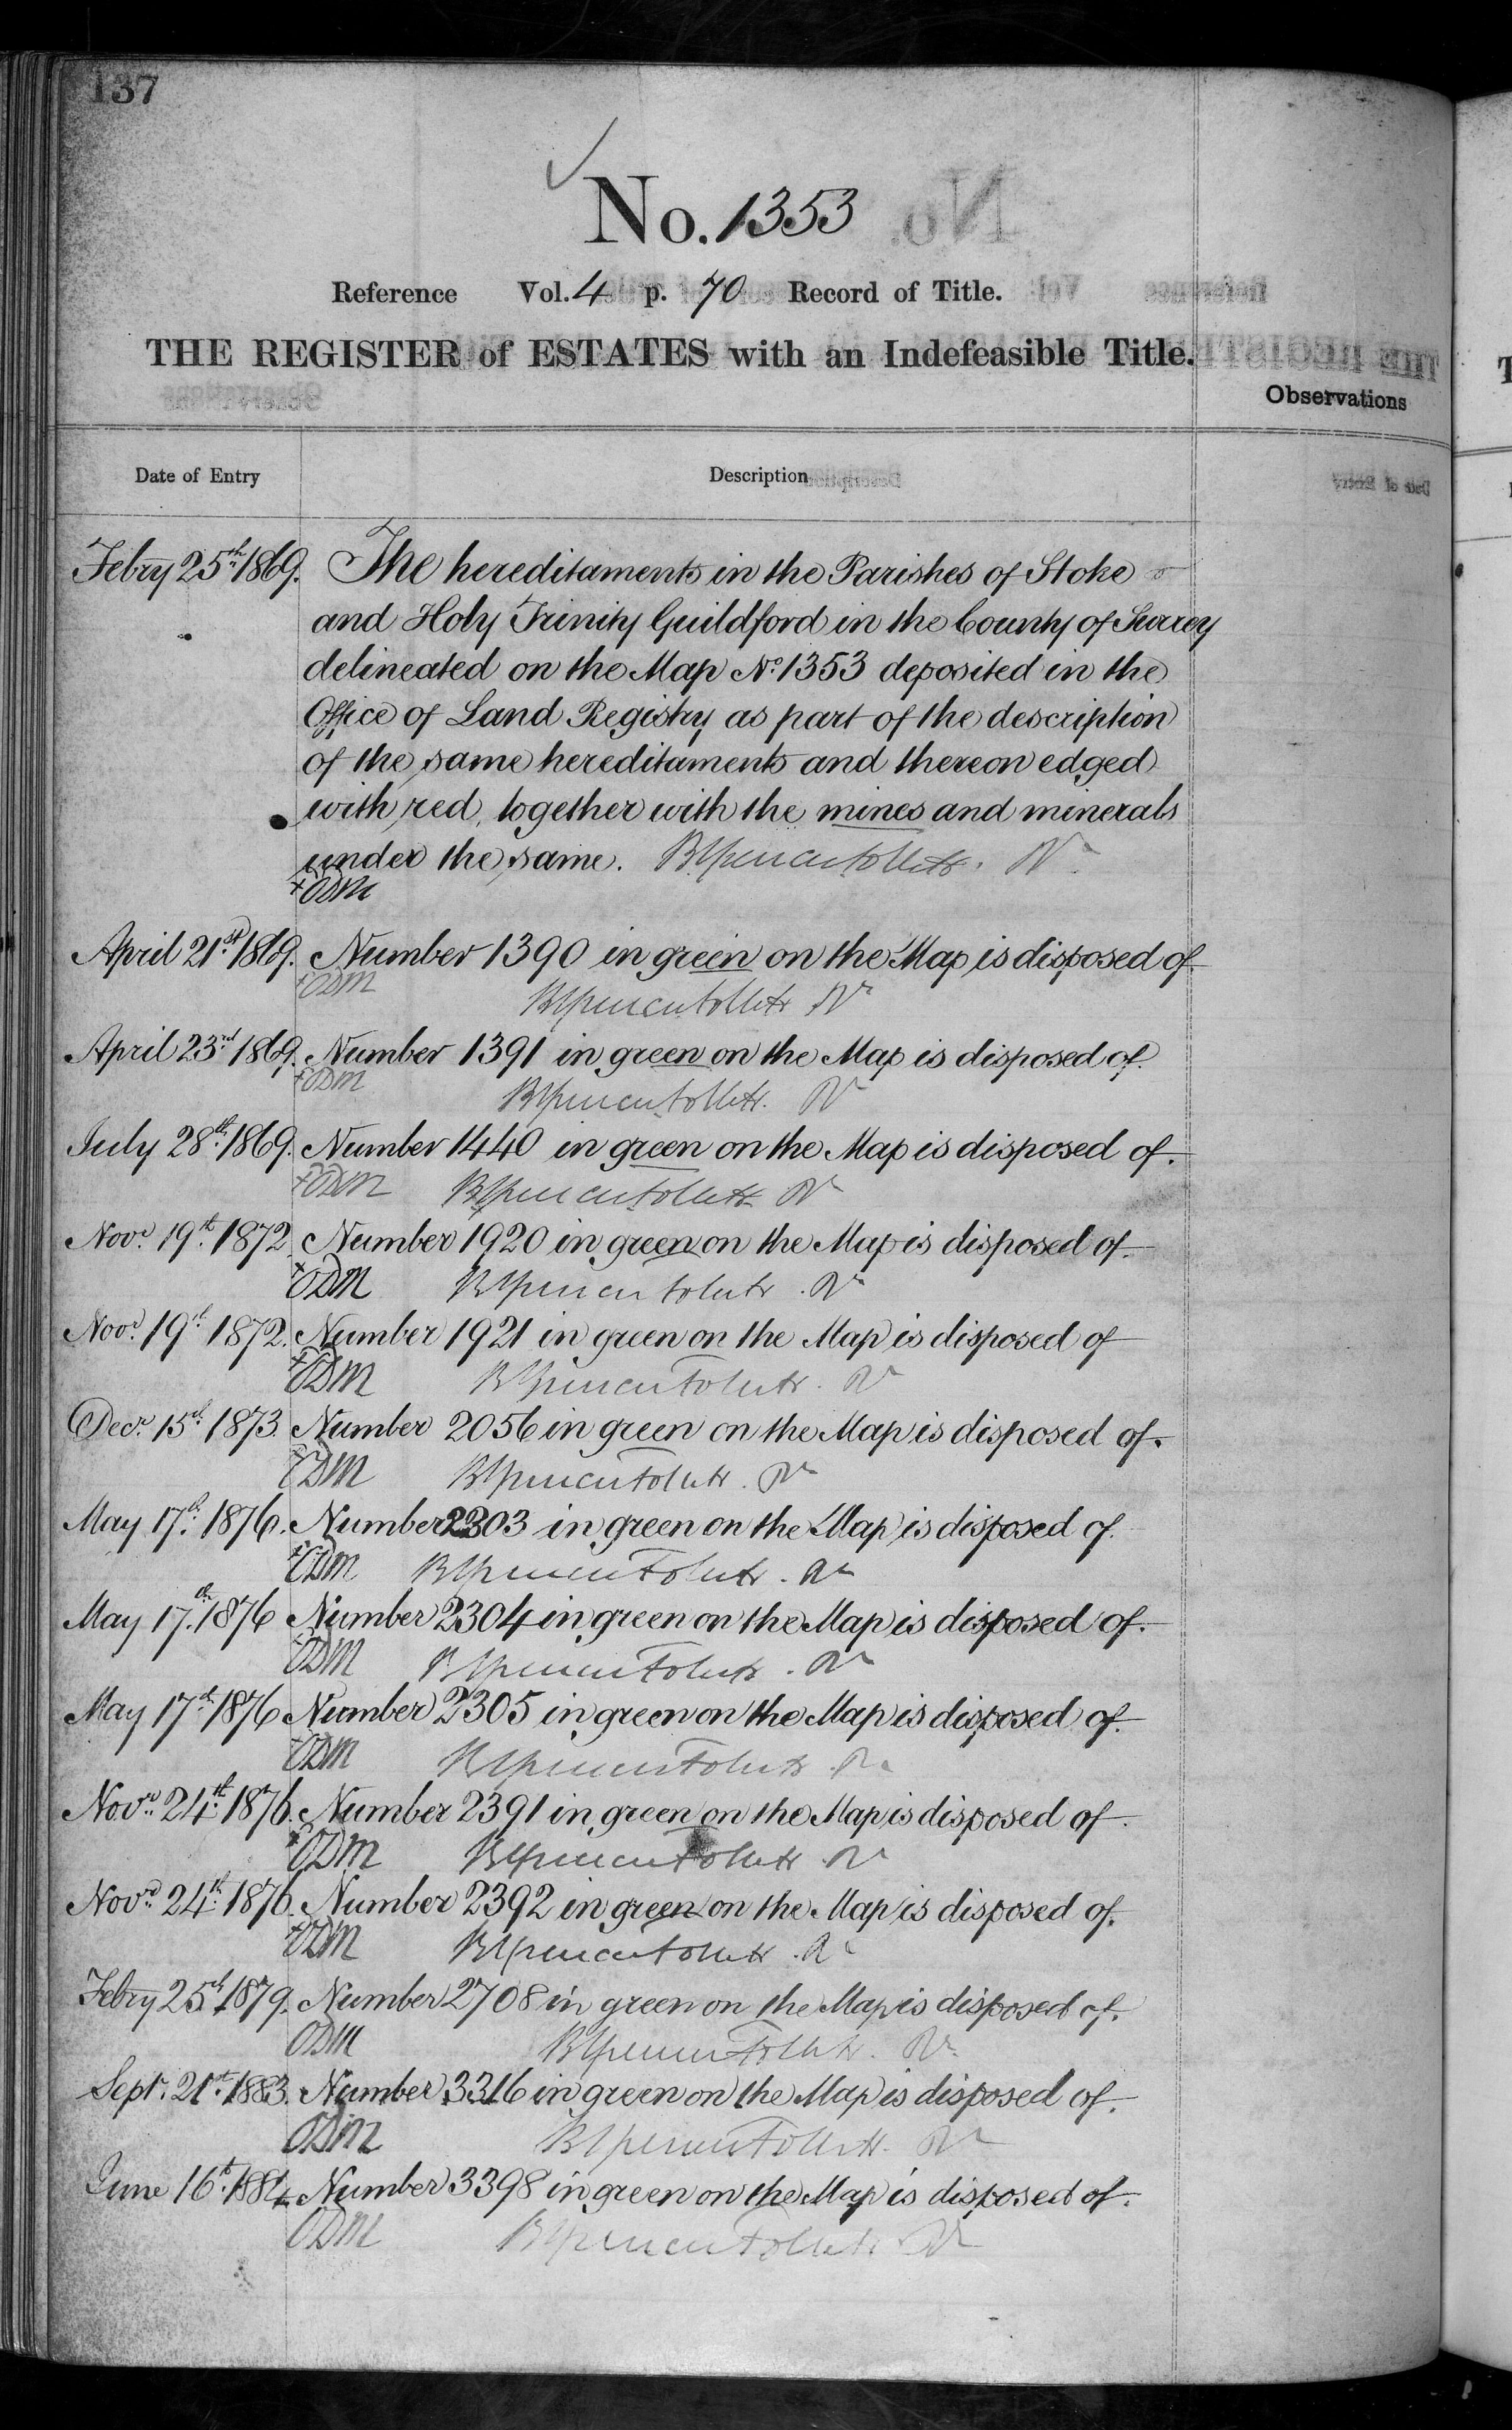 137
No. 1353
Reference Vol. 4 p. 70 Record of Title.
THE REGISTER of ESTATES with an Indefeasible Title.
Observations
Date of Entry Description
Febry 25th 1869. The hereditaments in the Parishes of Stoke
and Holy Trinity Guildford in the County of Surrey
delineated on the Map No. 1353 deposited in the
Office of Land Registry as part of the description
of the same hereditaments and thereon edged
with red, together with the mines and minerals
under the same.
+ODM
April 21st 1869. Number 1390 in green on the Map is disposed of
+ODM
April 23rd 1869. Number 1391 in green on the Map is disposed of.
+ODM
July 28th 1869. Number 1440 in green on the Map is disposed of.
+ODM
Novr. 19th 1872 Number 1920 in green on the Map is disposed of.
+ODM
Novr. 19th 1872. Number 1921 in green on the Map is disposed of
+ODM
Decr. 15th 1873. Number 2056 in green on the Map is disposed of.
+ODM
May 17th 1876. Number 2303 in green on the Map is disposed of.
+ODM
May 17th 1876 Number 2304 in green on the Map is disposed of.
+ODM
May 17th 1876 Number 2305 in green on the Map is disposed of.
+ODM
Novr. 24th 1876. Number 2391 in green on the Map is disposed of.
+ODM
Novr. 24th 1876. Number 2392 in green on the Map is disposed of.
+ODM
Febry 25th 1879. Number 2708 in green on the Map is disposed of.
ODM
Septr. 21st 1883. Number 3316 in green on the Map is disposed of.
ODM
June 16th 1884 Number 3398 in green on the Map is disposed of.
ODM